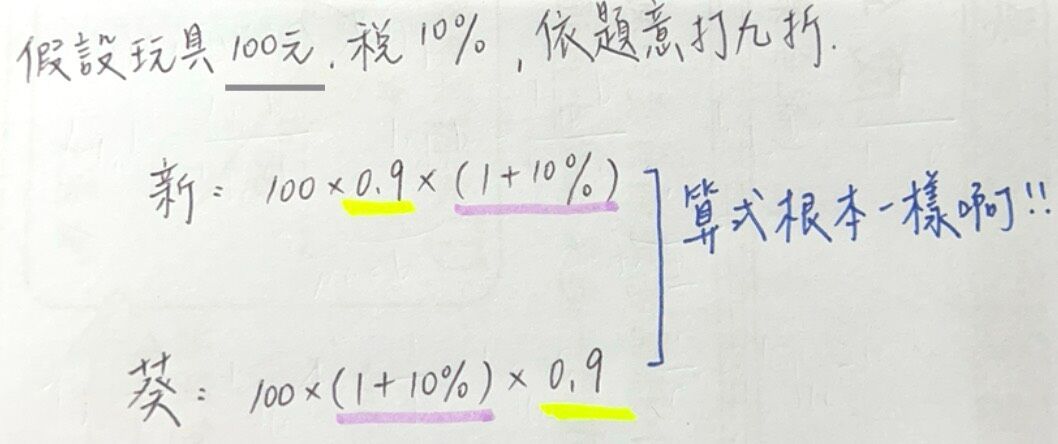 假設玩具100元,稅10%,依題意打九折.
新: 100×0.9×(1+10%)
算式根本一樣啊!!
葵: 100×(1+10%)×0.9